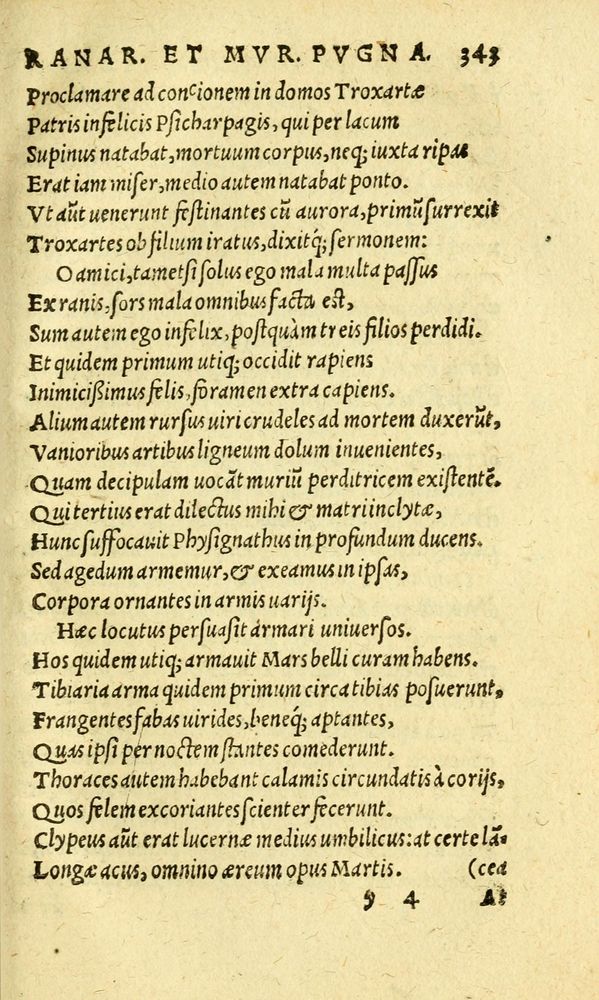 RANAR. ET MVR. PVGNA. 343
Proclamare ad concionem in domos Troxartæ
Patris infelicis Psicharpagis, qui per lacum
Supinus natabat, mortuum corpus, neq; iuxta ripas
Erat iam miser, medio autem natabat ponto.
Vt aūt uenerunt festinantes cū aurora, primū surrexit
Troxartes ob filium iratus, dixitq́; sermonem:
O amici, tametsi solus ego mala multa passus
Ex ranis, sors mala omnibus facta est,
Sum autem ego infelix, postquàm treis filios perdidi.
Et quidem primum utiq; occidit rapiens
Inimicißimus felis, foramen extra capiens.
Alium autem rursus uiri crudeles ad mortem duxerūt,
Vanioribus artibus ligneum dolum inuenientes,
Quam decipulam uocāt muriū perditricem existentē.
Qui tertius erat dilectus mihi & matri inclytæ,
Hunc suffocauit Physignathus in profundum ducens.
Sed agedum armemur, & exeamus in ipsas,
Corpora ornantes in armis uarijs.
Hæc locutus persuasit armari uniuersos.
Hos quidem utiq; armauit Mars belli curam habens.
Tibiaria arma quidem primum circa tibias posuerunt,
Frangentes fabas uirides, beneq́; aptantes,
Quas ipsi per noctem stantes comederunt.
Thoraces autem habebant calamis circundatis à corijs,
Quos felem excoriantes scienter fecerunt.
Clypeus aūt erat lucernæ medius umbilicus: at certe lā-
Longæ acus, omnino æreum opus Martis. (cea
y 4 At